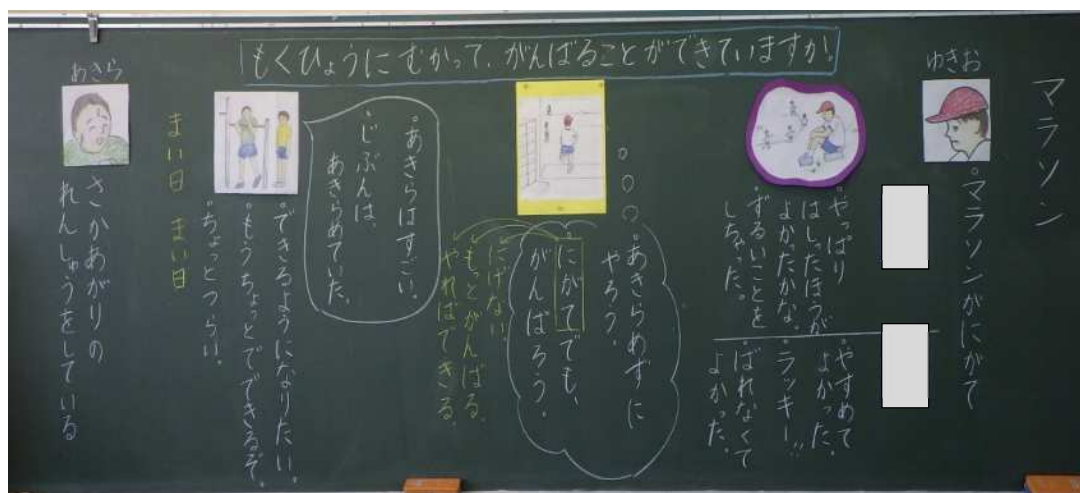 マラソン
もくひょうにむかって、がんばることができていますか。
ゆきお
。マラソンがにがて
。やっぱり
はしったほうが
よかったかな。
。ずるいことを
しちゃった。
。やすめて
よかった。
。ラッキー!!
。ばれなくて
よかった。
。あきらめずに
やろう。
。にがてでも、
がんばろう。
にげない。
もっとがんばる。
やればできる。
。あきらはすごい。
。じぶんは、
あきらめていた。
。できるようになりたい。
。もうちょっとでできるぞ。
。ちょっとつらい。
まい日 まい日
あきら
さかあがりの
れんしゅうをしている